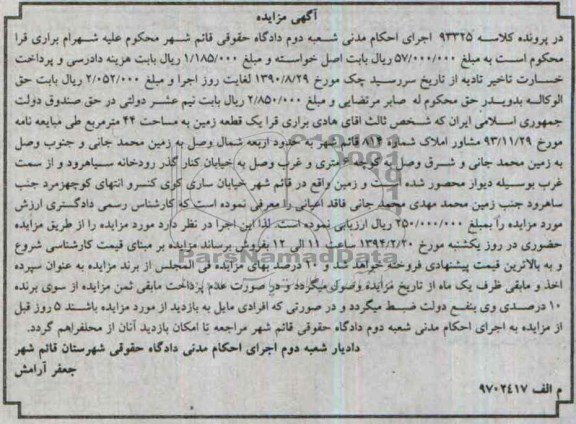 آگهی مزایده
در پرونده کلاسه ۹۳۳۲۵ اجرای احکام مدنی شعبه دوم دادگاه حقوقی قائم شهر محکوم علیه شهرام براری فرا
محکوم است به مبلغ ۵۷/۰۰۰/۰۰۰ ریال بابت اصل خواسته و مبلغ ۱/۱۸۵/۰۰۰ ریال بابت هزینه دادرسی و پرداخت
خسارت تاخیر تادیه از تاریخ سررسید چک مورخ ۱۳۹۰/۸/۲۹ لغایت روز اجرا و مبلغ ۲/۰۵۲/۰۰۰ ریال بابت حق
الوکاله بدویدر حق محکوم له صابر مرتضایی و مبلغ ۲/۸۵۰/۰۰۰ ریال بابت نیم عشر دولتی در حق صندوق دولت
جمهوری اسلامی ایران که شخص ثالث اقای هادی براری فرا یک قطعه زمین به مساحت ۴۴ مترمربع طی مبایعه نامه
مورخ ۹۳/۱۱/۲۹ مشاور املاک شماره ۸۱۴ قائم شهر به حدود اربعه شمال وصل به زمین محمد جانی و جنوب وصل
به زمین محمد جانی و شرق وصل به کوچه متری و غرب وصل به خیابان کنار گذر رودخانه سیاهرود و از سمت
غرب بوسیله دیوار محصور شده است و زمین واقع در قائم شهر خیابان ساری کوی کنسرو انتهای کوچهزمرد جنب
ساهرود جنب زمین محمد مهدی محمد جانی فاقد اعیانی را معرفی نموده است که کارشناس رسمی دادگستری ارزش
مورد مزایده را بمبلغ ۲۵۰/۰۰۰/۰۰۰ ریال ارزیابی نموده است لذا این اجرا در نظر دارد مورد مزایده را از طریق مزایده
حضوری در روز یکشنبه مورخ ۱۳۹۴/۲/۲۰ ساعت ۱۱ الی ۱۲ بفروش برساند مزایده بر مبنای قیمت کارشناسی شروع
و به بالاترین قیمت پیشنهادی فروخته خواهد شد و ۱۰ درصد بهای مزایده فی المجلس از برند مزایده به عنوان سپرده
اخذ و مابقی ظرف یک ماه از تاریخ مزایده وصول میگردد و در صورت عدم پرداخت مابقی ثمن مزایده از سوی برنده
۱۰ درصدی وی بنفع دولت ضبط میگردد و در صورتی که افرادی مایل به بازدید از مورد مزایده باشند ۵ روز قبل
از مزایده به اجرای احکام مدنی شعبه دوم دادگاه حقوقی قائم شهر مراجعه تا امکان بازدید آنان از محلفراهم گردد.
دادیار شعبه دوم اجرای احکام مدنی دادگاه حقوقی شهرستان قائم شهر
جعفر آرامش
م الف ۹۷۰۲۴۱۷
ParsNamadData